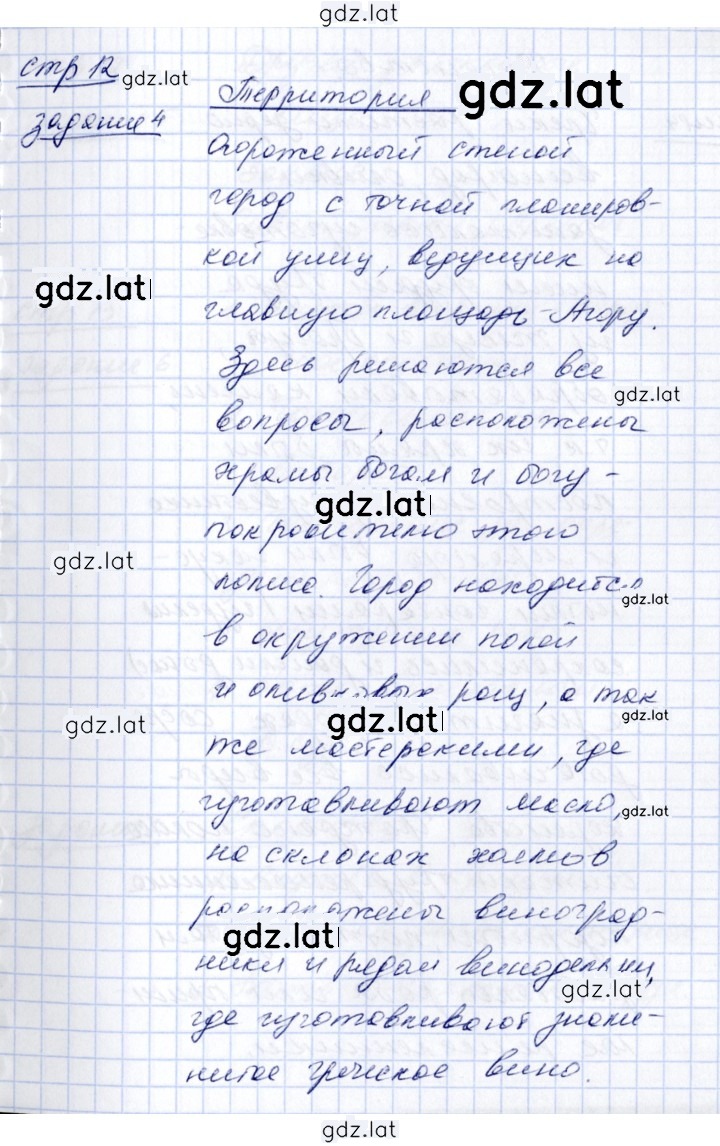 gdz.lat
стр 12 gdz.lat
Территория gdz.lat
задание 4
Огороженный стеной
город с точной планиров-
кой улиц, ведущих на
gdz.lat
главную площадь - Агору.
Здесь решаются все
gdz.lat
вопросы, расположены
храмы богам и богу -
gdz.lat
покровителю этого
gdz.lat
полиса. Город находится
gdz.lat
в окружении полей
и оливковых рощ, а так
gdz.lat
gdz.lat
gdz.lat
же мастерскими, где
изготавливают масло,
gdz.lat
на склонах холмов
расположены виноград-
gdz.lat
ники и рядом винодельни,
gdz.lat
где изготавливают знаме-
нитое греческое вино.
gdz.lat